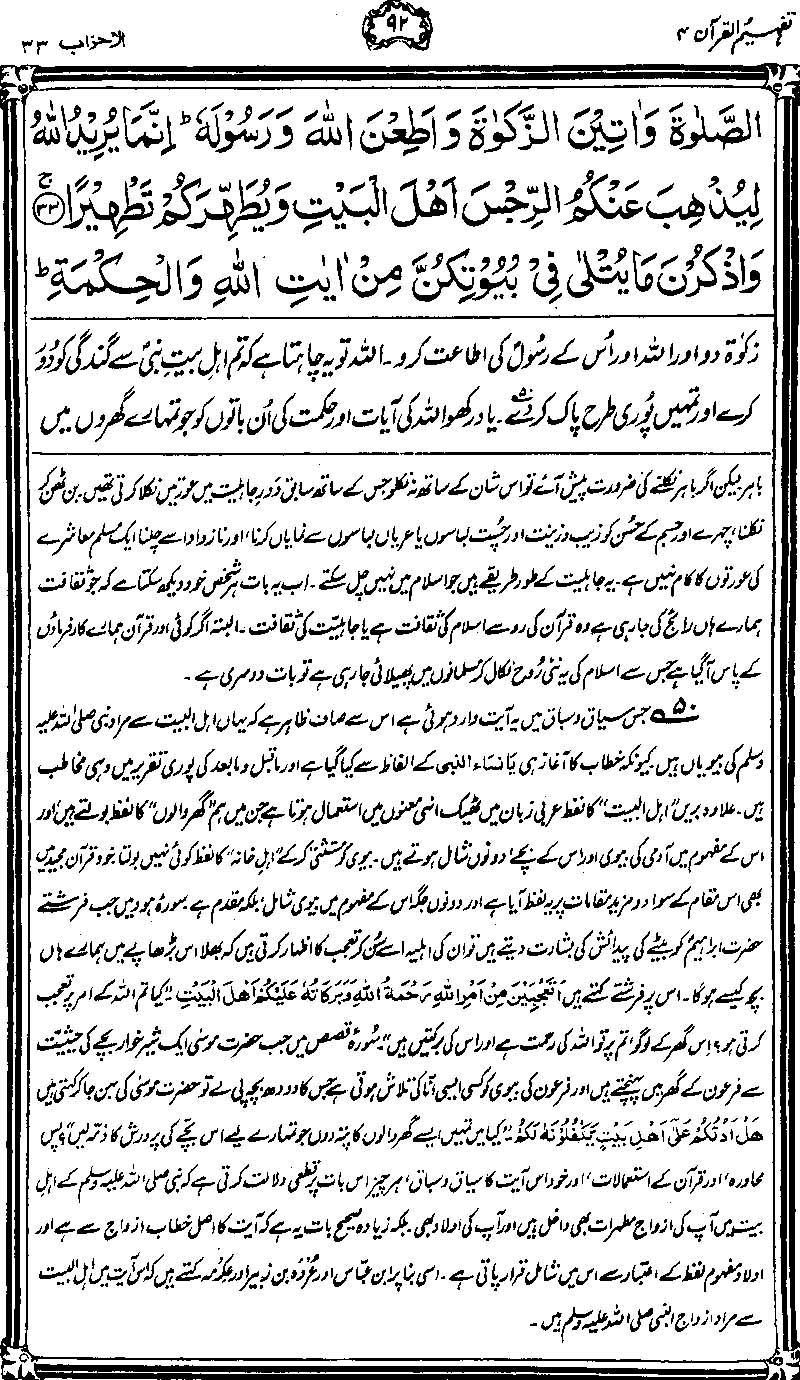 تفہیم القرآن ۴
۹۲
الاحزاب ۳۳
الصَّلٰوةَ وَاٰتِيْنَ الزَّكٰوةَ وَاَطِعْنَ اللّٰهَ وَرَسُوْلَهٗ ؕ اِنَّمَا يُرِيْدُ اللّٰهُ
لِيُذْهِبَ عَنْكُمُ الرِّجْسَ اَهْلَ الْبَيْتِ وَيُطَهِّرَكُمْ تَطْهِيْرًا ۚ ﴿۳۳﴾
وَاذْكُرْنَ مَا يُتْلٰى فِيْ بُيُوْتِكُنَّ مِنْ اٰيٰتِ اللّٰهِ وَالْحِكْمَةِ ؕ
زکوٰۃ دو اور اللہ اور اُس کے رسُولؐ کی اطاعت کرو۔ اللہ تو یہ چاہتا ہے کہ تم اہلِ بیتِ نبیؐ سے گندگی کو دُور
کرے اور تمہیں پُوری طرح پاک کر دے ۵۰۔ یاد رکھو اللہ کی آیات اور حکمت کی اُن باتوں کو جو تمہارے گھروں میں
باہر۔ لیکن اگر باہر نکلنے کی ضرورت پیش آئے تو اس شان کے ساتھ نہ نکلو جس کے ساتھ سابق دَورِ جاہلیت میں عورتیں نکلا کرتی تھیں۔ بن ٹھن کر
نکلنا، چہرے اور جسم کے حُسن کو زیب و زینت اور چُست لباسوں یا عریاں لباسوں سے نمایاں کرنا، اور ناز و ادا سے چلنا ایک مسلم معاشرے
کی عورتوں کا کام نہیں ہے۔ یہ جاہلیت کے طور طریقے ہیں جو اسلام میں نہیں چل سکتے۔ اب یہ بات ہر شخص خود دیکھ سکتا ہے کہ جو ثقافت
ہمارے ہاں رائج کی جا رہی ہے وہ قرآن کی رو سے اسلام کی ثقافت ہے یا جاہلیّت کی ثقافت۔ البتہ اگر کوئی اور قرآن ہمارے کارفرماؤں
کے پاس آ گیا ہے جس سے اسلام کی یہ نئی رُوح نکال کر مسلمانوں میں پھیلائی جا رہی ہے تو بات دوسری ہے۔
۵۰ جس سیاق و سباق میں یہ آیت وارد ہوئی ہے اس سے صاف ظاہر ہے کہ یہاں اہل البیت سے مراد نبی صلی اللہ علیہ
وسلم کی بیویاں ہیں۔ کیونکہ خطاب کا آغاز ہی یَا نِسَاءَ النبی کے الفاظ سے کیا گیا ہے اور ماقبل و مابعد کی پوری تقریر میں وہی مخاطب
ہیں۔ علاوہ بریں "اہل البیت" کا لفظ عربی زبان میں ٹھیک انہی معنوں میں استعمال ہوتا ہے جن میں ہم "گھر والوں" کا لفظ بولتے ہیں، اور
اس کے مفہوم میں آدمی کی بیوی اور اس کے بچے، دونوں شامل ہوتے ہیں۔ بیوی کو مستثنیٰ کر کے "اہلِ خانہ" کا لفظ کوئی نہیں بولتا۔ خود قرآن مجید میں
بھی اس مقام کے سوا دو مزید مقامات پر یہ لفظ آیا ہے اور دونوں جگہ اس کے مفہوم میں بیوی شامل، بلکہ مقدم ہے۔ سورۂ ہود میں جب فرشتے
حضرت ابراہیمؑ کو بیٹے کی پیدائش کی بشارت دیتے ہیں تو ان کی اہلیہ اسے سُن کر تعجب کا اظہار کرتی ہیں کہ بھلا اس بڑھاپے میں ہمارے ہاں
بچہ کیسے ہو گا۔ اس پر فرشتے کہتے ہیں اَتَعْجَبِيْنَ مِنْ اَمْرِ اللّٰهِ رَحْمَةُ اللّٰهِ وَبَرَكَاتُهٗ عَلَيْكُمْ اَهْلَ الْبَيْتِ۔ "کیا تم اللہ کے امر پر تعجب
کرتی ہو؟ اِس گھر کے لوگو، تم پر تو اللہ کی رحمت ہے اور اس کی برکتیں ہیں"۔ سُورۂ قصص میں جب حضرت موسیٰ ایک شیر خوار بچے کی حیثیت
سے فرعون کے گھر میں پہنچتے ہیں اور فرعون کی بیوی کو کسی ایسی انّا کی تلاش ہوتی ہے جس کا دودھ بچہ پی لے تو حضرت موسیٰ کی بہن جا کر کہتی ہیں
هَلْ اَدُلُّكُمْ عَلٰٓى اَهْلِ بَيْتٍ يَّكْفُلُوْنَهٗ لَكُمْ۔ "کیا میں تمہیں ایسے گھر والوں کا پتہ دوں جو تمہارے لیے اس بچے کی پرورش کا ذمہ لیں"؟ پس
محاورہ، اور قرآن کے استعمالات، اور خود اس آیت کا سیاق و سباق، ہر چیز اس بات پر قطعی دلالت کرتی ہے کہ نبی صلی اللہ علیہ وسلم کے اہلِ
بیت میں آپ کی ازواجِ مطہرات بھی داخل ہیں اور آپ کی اولاد بھی۔ بلکہ زیادہ صحیح بات یہ ہے کہ آیت کا اصل خطاب ازواج سے ہے اور
اولاد مفہومِ لفظ کے اعتبار سے اس میں شامل قرار پاتی ہے۔ اسی بنا پر ابن عباس اور عُروہ بن زبیر اور عِکرِمہ کہتے ہیں کہ اس آیت میں اہل البیت
سے مراد ازواج النبی صلی اللہ علیہ وسلم ہیں۔